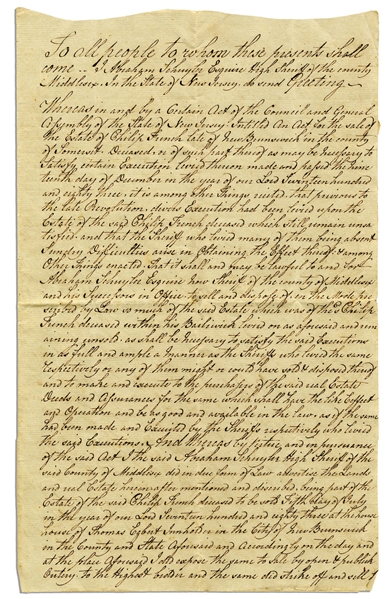 To all people to whom these presents shall
come -- I Abraham Schuyler Esquire High Sheriff of the county
Middlesex. In the State of New Jersey do send Greeting --
Whereas in and by a Certain Act of the Council and General
Assembly of the State of New Jersey Intitled An Act for the sale of
the Estate of Philip French late of New Brunswick in the county
of Somerset Deceased, or of such part thereof as may be necessary to
Satisfy certain Executions levied thereon made and passed the nine
teenth day of December in the year of our Lord Seventeen hundred
and eighty three, it is among other Things recited That previous to
the late Revolution divers Executions had been levied upon the
Estate of the said Philip French deceased which Still remain unsa
tisfied and that the Sheriffs who levied many of them being absent
Sundry Difficulties arise in Obtaining the Effect thereof & among
Other Things enacted That it shall and may be lawful to and for
Abraham Schuyler Esquire Now Sheriff of the county of Middlesex
and his Successors in Office to sell and dispose of in the Mode pre
scribed by Law so much of the said Estate which was of the sd Philip
French deceased within his Bailiwick levied on as aforesaid and rem
aining unsold as shall be necessary to satisfy the said Executions
in as full and ample a manner as the Sheriffs who levied the same
respectively or any of them might or could have sold & disposed thereof
and to make and execute to the purchasers of the said real Estate
Deeds and Assurances for the same which shall have the like Effect
and Operation and be as good and available in the Law as if the same
had been made and Executed by the Sheriffs respectively who levied
the said Executions, And Whereas by virtue and in pursuance
of the said Act I the said Abraham Schuyler High Sheriff of the
said County of Middlesex did in due form of Law advertise the Lands
and real Estate herein after mentioned and described being part of the
Estate of the said Philip French deceased to be sold Fifth day of July
in the year of our Lord Seventeen hundred and eighty three at the house
house of Thomas Egbert Innholder in the City of New Brunswick
in the County and State Aforesaid and accordingly on the day and
at the place Aforesaid I did expose the same to sale by open & publick
Outcry to the Highest bidder and the same did strike off and sell t